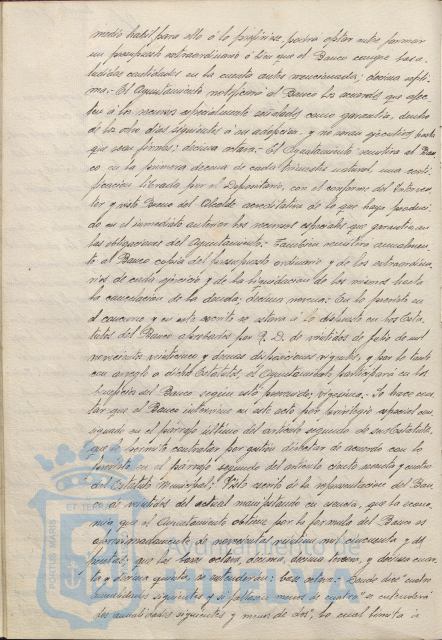 medio habil para ello ó lo prefiriese, podra optar entre formar
un presupuesto extraordinario ó bien que el Banco cargue las a-
ludidas cantidades en la cuenta antes mencionada; décima sépti-
ma.- El Ayuntamiento notificará al Banco los acuerdos que afec-
ten á los recursos especialmente señalados como garantia, dentro
de los ocho dias siguientes á su adopcion, y no seran ejecutivos hasta
que sean firmes; décima octava.- El Ayuntamiento remitira al Ban-
co en la primera decena de cada trimestre natural, una certi-
ficacion librada por el Depositario, con el conforme del Interven-
tor y visto Bueno del Alcalde acreditativa de lo que haya produci-
do en el inmediato anterior los recursos especiales que garantizan
las obligaciones del Ayuntamiento. Tambien remitira anualmen-
te al Banco copia del presupuesto ordinario y de los extraordina-
rios de cada ejercicio y de la liquidacion de los mismos hasta
la cancelacion de la deuda; decima novena.- En lo previsto en
el concurso y en este escrito se estará á lo dispuesto en los Esta-
tutos del Banco aprobados por R. D. de veintidos de julio de mil
novecientos veinticinco y demas disposiciones vigentes, y por lo tanto
con arreglo á dichos Estatutos, el Ayuntamiento participará en los
beneficios del Banco segun está prevenido; vigesima.- Se hace cons-
tar que el Banco interviene en este acto por privilegio especial con-
signado en el párrafo último del articulo segundo de sus Estatutos,
que le permite contratar por gestion directa de acuerdo con lo
previsto en el párrafo segundo del articulo ciento sesenta y cuatro
del Estatuto Municipal. Visto escrito de la representacion del Ban-
co de veintidos del actual manifestando en esencia, que la econo-
mia que el Ayuntamiento obtiene por la formula del Banco es
aproximadamente de novecientas mil cincuenta y dos
pesetas; que las bases octava, decima, decima tercera, y decima cuar-
ta y decima quinta, se entenderan: base octava.- Donde dice cuatro
anualidades siguientes y si faltasen menos de cuatro" se entenderá
dos anualidades siguientes y menos de dos", lo cual limita á
Ayuntamiento de
PORTUS MARIS
ET TERRAE